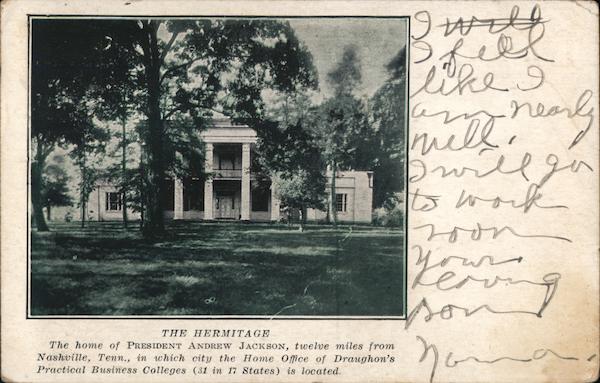 I will
I feel
like I
am nearly
well.
I will go
to work
soon
Your
loving
son
THE HERMITAGE
The home of PRESIDENT ANDREW JACKSON, twelve miles from
Nashville, Tenn., in which city the Home Office of Draughon's
Practical Business Colleges (31 in 17 States) is located.